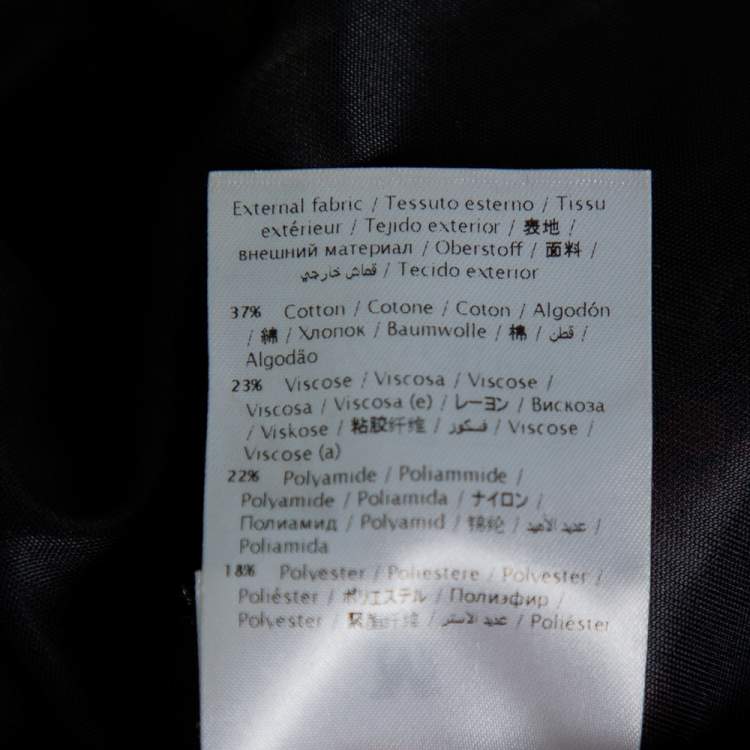 External fabric / Tessuto esterno / Tissu
extérieur / Tejido exterior / 表地 /
внешний материал / Oberstoff / 面料 /
قماش خارجي / Tecido exterior
37% Cotton / Cotone / Coton / Algodón
/ 綿 / Хлопок / Baumwolle / 棉 / قطن /
Algodão
23% Viscose / Viscosa / Viscose /
Viscosa / Viscosa (e) / レーヨン / Вискоза
/ Viskose / 粘胶纤维 / فسكوز / Viscose /
Viscose (a)
22% Polyamide / Poliammide /
Polyamide / Poliamida / ナイロン /
Полиамид / Polyamid / 锦纶 / عديد الأميد /
Poliamida
18% Polyester / Poliestere / Polyester /
Poliéster / ポリエステル / Полиэфир /
Polyester / 纤维 / عديد الاستر / Poliéster